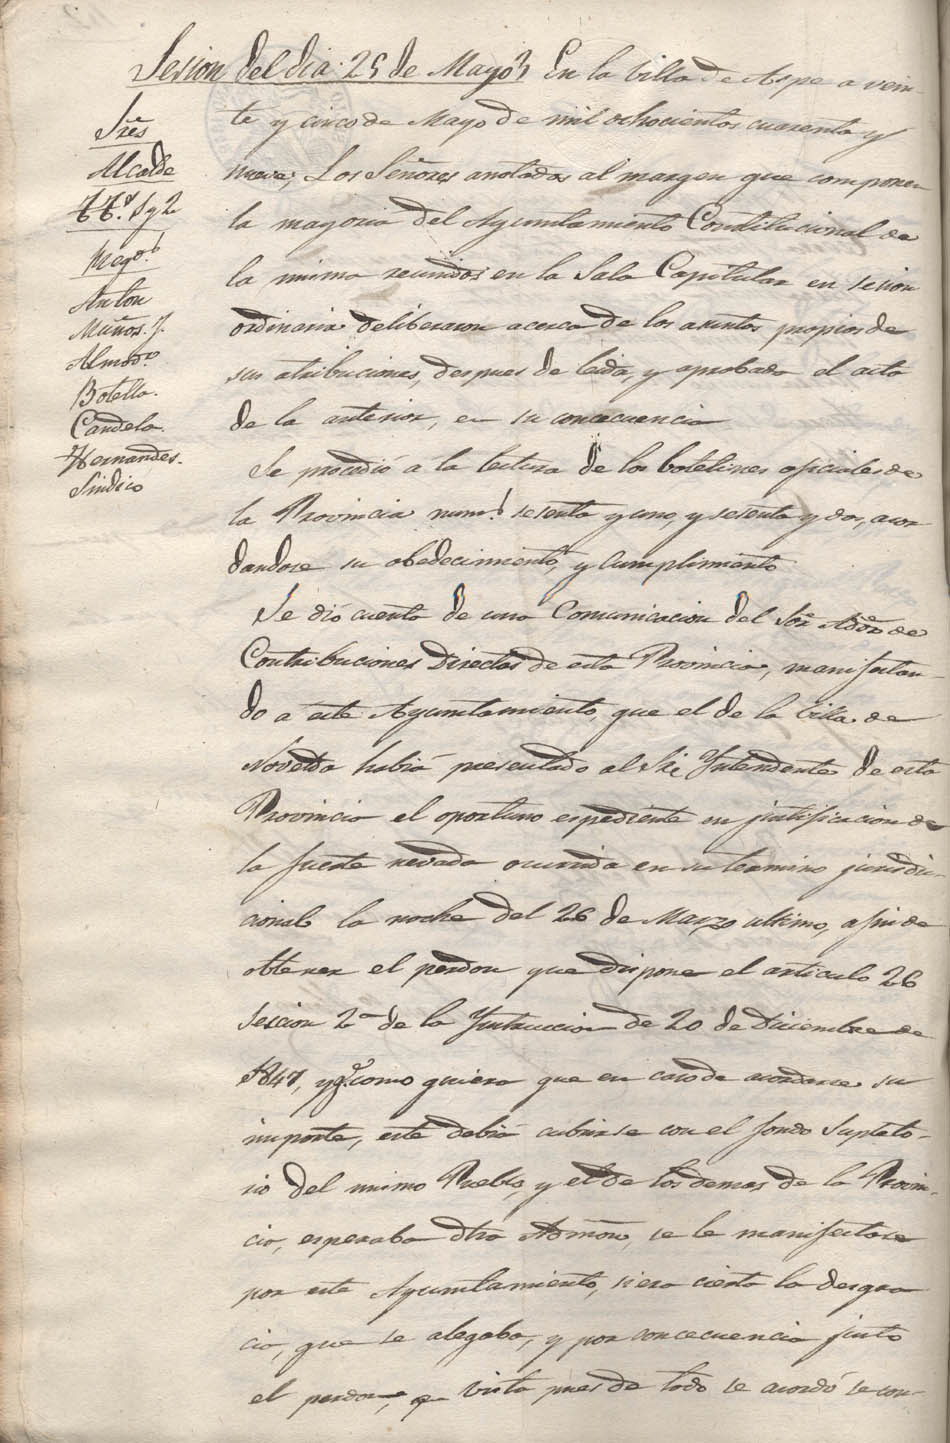 Sesion del dia 25 de Mayo En la Villa de Aspe a vein-
te y cinco de Mayo de mil ochocientos cuarenta y
nueve, Los Señores anotados al margen que componen
la mayoria del Ayuntamiento Constitucional de
la misma reunidos en la Sala Capitular en sesion
ordinaria deliberaron acerca de los asuntos propios de
sus atribuciones, despues de leida, y aprobada el acta
de la anterior, en su concecuencia
Se procedió á la lectura de los boletines oficiales de
la Provincia num.s sesenta y uno, y sesenta y dos, acor
dandose su obedecimiento, y cumplimiento
Se dió cuenta de una Comunicacion del Sor Ador de
Contribuciones Directas de esta Provincia, manifestan-
do á este Ayuntamiento, que el de la Villa de
Novelda habia presentado al Sr. Yntendente de esta
Provincia el oportuno espediente en justificacion de
la fuerte nevada ocurrida en su termino jurisdic-
cional la noche del 26 de Marzo ultimo, a fin de
obtener el perdon que dispone el articulo 26
Seccion 2a de la Ynstruccion de 20 de Diciembre de
1847, y qe como quiera que en caso de acordarse su
importe, este debia cubrirse con el fondo Supleto-
rio del mismo Pueblo, y el de los demas de la Provin-
cia, esperaba dha Admon, se le manifestase
por este Ayuntamiento, si era cierta la desgra
cia, que se alegaba, y por concecuencia justo
el perdon, en vista pues de todo se acordó se con-
Sres
Alcalde
TT.s 1 y 2
Regs.
Anton
Muños. J.
Almodo.
Botella.
Candela.
Hernandes.
Sindico